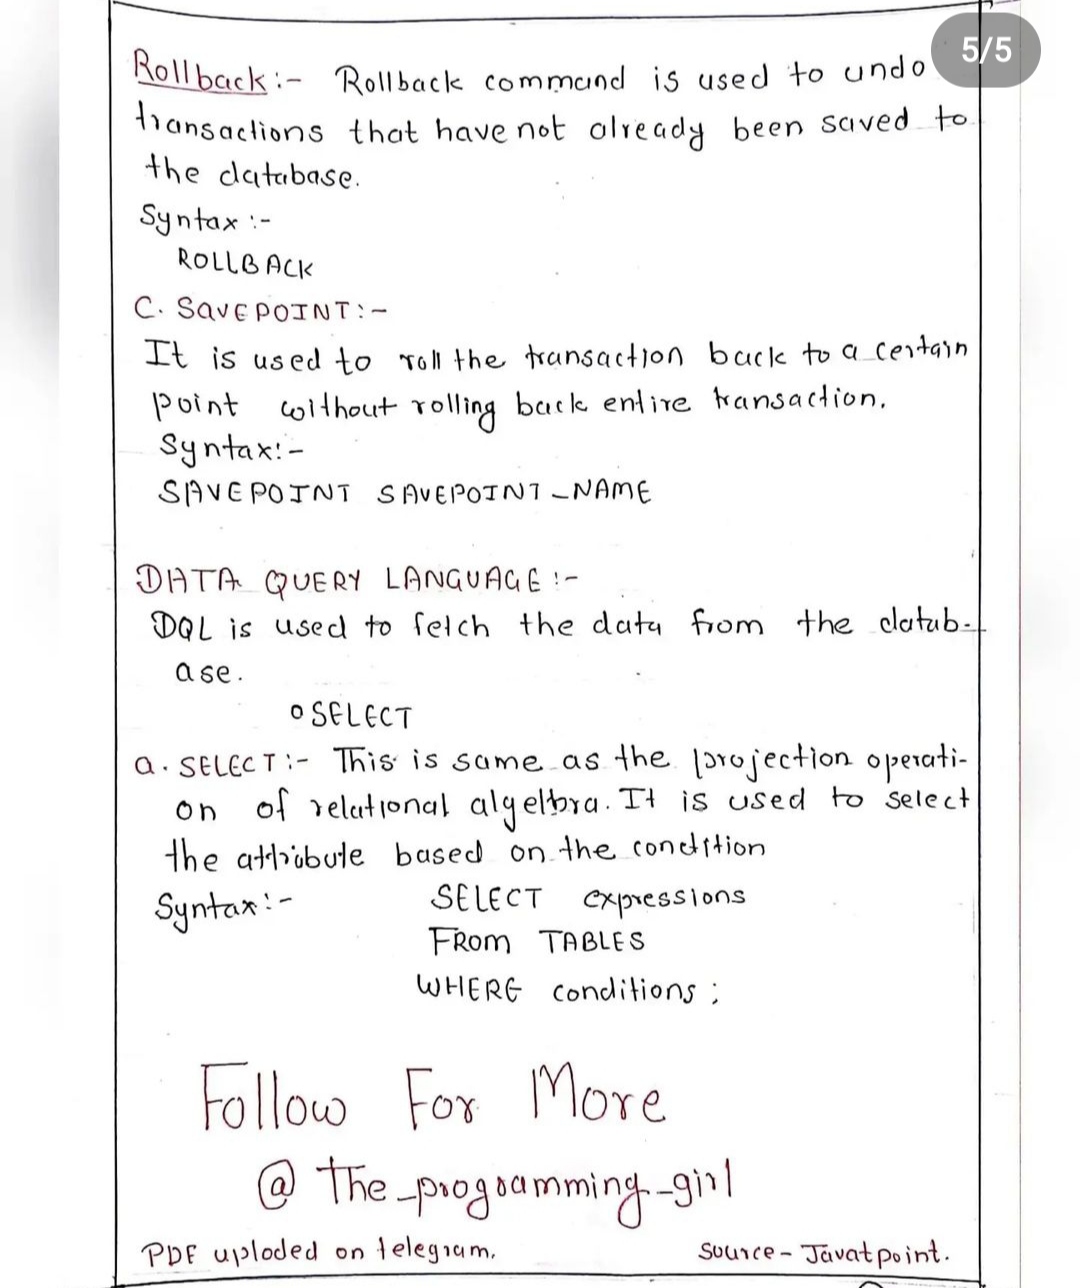 5/5
Rollback:- Rollback command is used to undo
transactions that have not already been saved to
the database.
Syntax :-
ROLLBACK
C. SAVEPOINT:-
It is used to roll the transaction back to a certain
point without rolling back entire transaction.
Syntax:-
SAVEPOINT SAVEPOINT_NAME
DATA QUERY LANGUAGE :-
DQL is used to fetch the data from the datab-
ase.
o SELECT
a. SELECT:- This is same as the projection operati-
on of relational algelbra. It is used to select
the attribute based on the condition
Syntax:- SELECT expressions
FROM TABLES
WHERE conditions ;
Follow For More
@ the_programming_girl
PDF uploded on telegram. Source - Javatpoint.